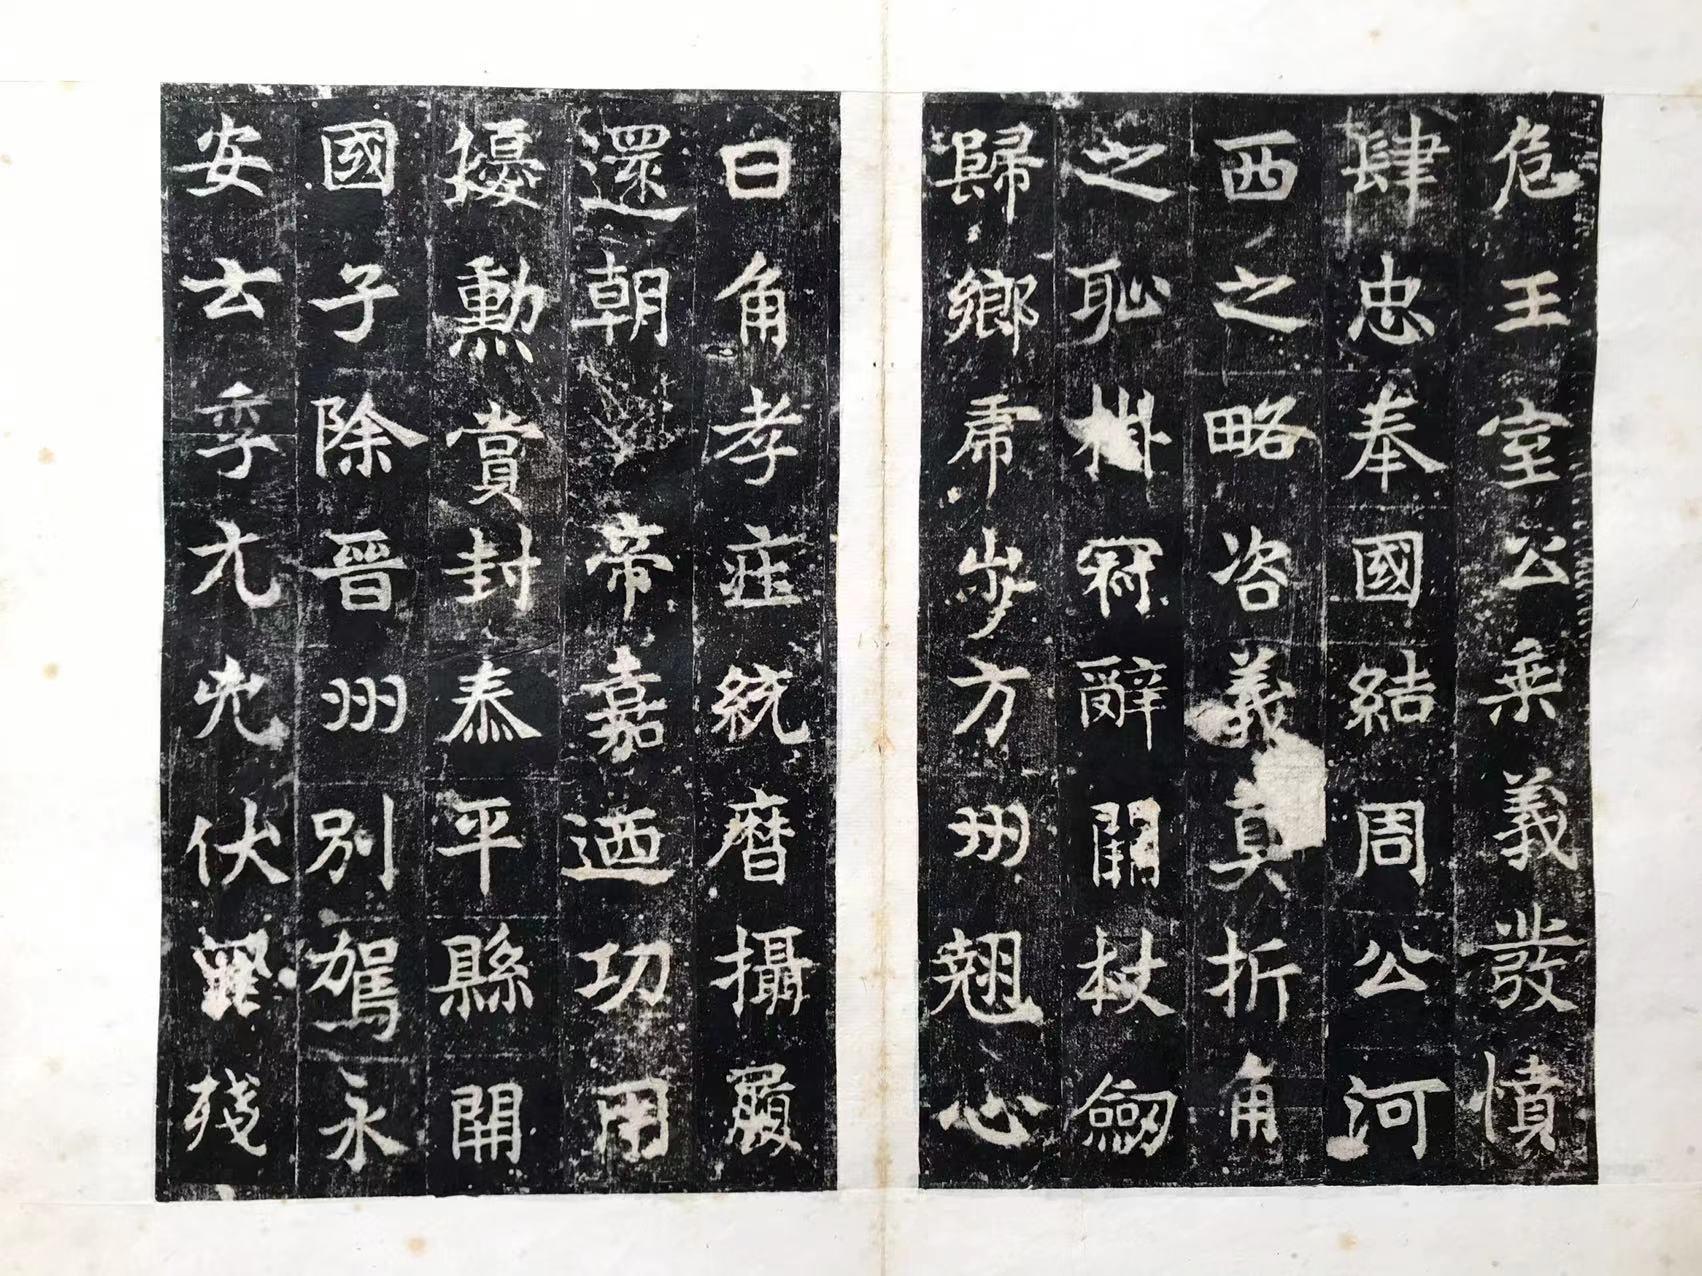 危王室公乘義發憤
肆忠奉國結周公河
西之略咨義真折角
之恥掛冠辭闕杖劒
歸鄉虎步方州翹心
日角孝莊統暦攝屨
還朝 帝嘉迺功用
擾勳賞封泰平縣開
國子除晉州別駕永
安云季元兇伏殘